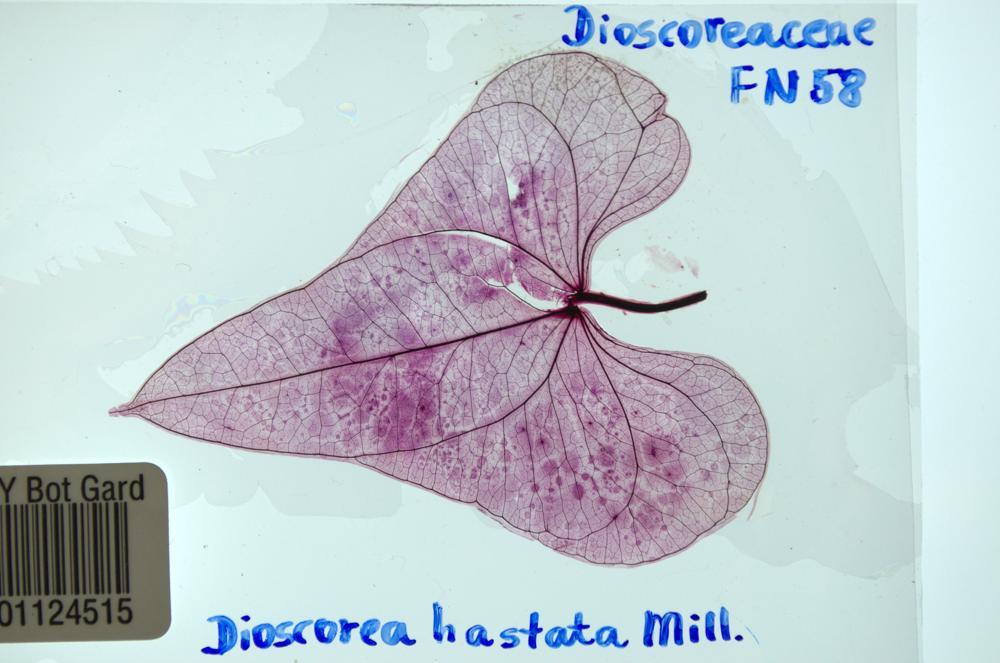 Dioscoreaceae
FN58
Y Bot Gard
01124515
Dioscorea hastata Mill.